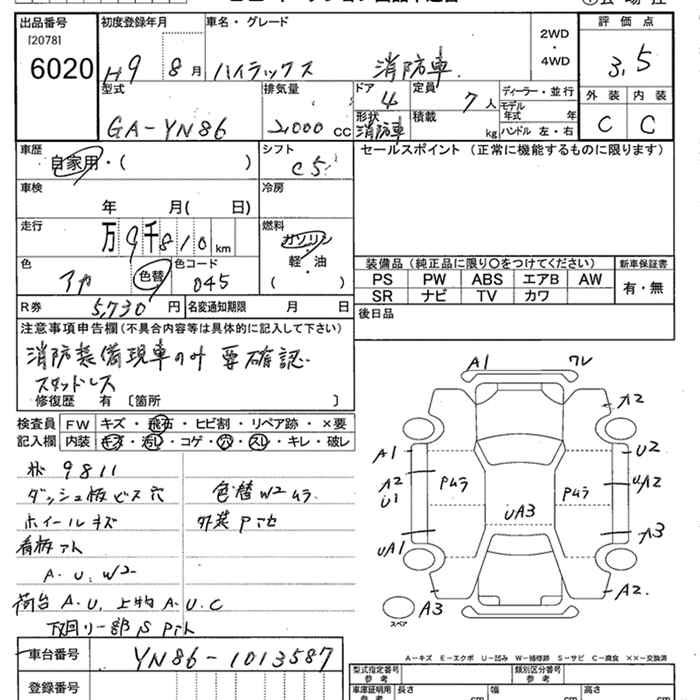 出品番号
[2078]
6020
初度登録年月
H9 8 月
車名・グレード
ハイラックス 消防車
2WD
・
4WD
評価点
3.5
外装 内装
C C
型式
GA-YN86
排気量
2,000 cc
ドア
4
形状
消防車
定員
7 人
積載
kg
ディーラー・並行
モデル
年式 年
ハンドル 左・右
車歴
自家用・( )
シフト
C5
セールスポイント (正常に機能するものに限ります)
車検
年 月( 日)
冷房
走行
万 9 千 8 1 0 km
燃料
ガソリン
軽・油
( ・ )
色
アカ
色替
色コード
045
装備品 (純正品に限り〇をつけてください)
新車保証書
PS PW ABS エアB AW
SR ナビ TV カワ
有・無
R券 5,730 円
名変通知期限 月 日
後日品
注意事項申告欄 (不具合内容等は具体的に記入して下さい)
消防装備現車のみ 要確認
スタッドレス
修復歴 有 [箇所 ]
検査員
記入欄
FW キズ・飛石・ヒビ割・リペア跡・×要
内装 キズ・汚レ・コゲ・穴・スレ・キレ・破レ
9811
ダッシュ板ビス穴
ホイールキズ
看板アト
A.U.W2
色替W2ムラ
外装Pトビ
荷台 A.U. 上物 A.U.C
下回り一部S Pトレ
A1
A2
A1
U2
A2
U1
Pムラ
Pムラ
UA3
A3
UA1
A2
A3
スペア
A-キズ E-エクボ U-凹み W-補修跡 S-サビ C-腐食 ××-交換済
車台番号
YN86-1013587
登録番号
型式指定番号
参考
類別区分番号
参考
車庫証明用
参考
長さ
cm
幅
cm
高さ
cm